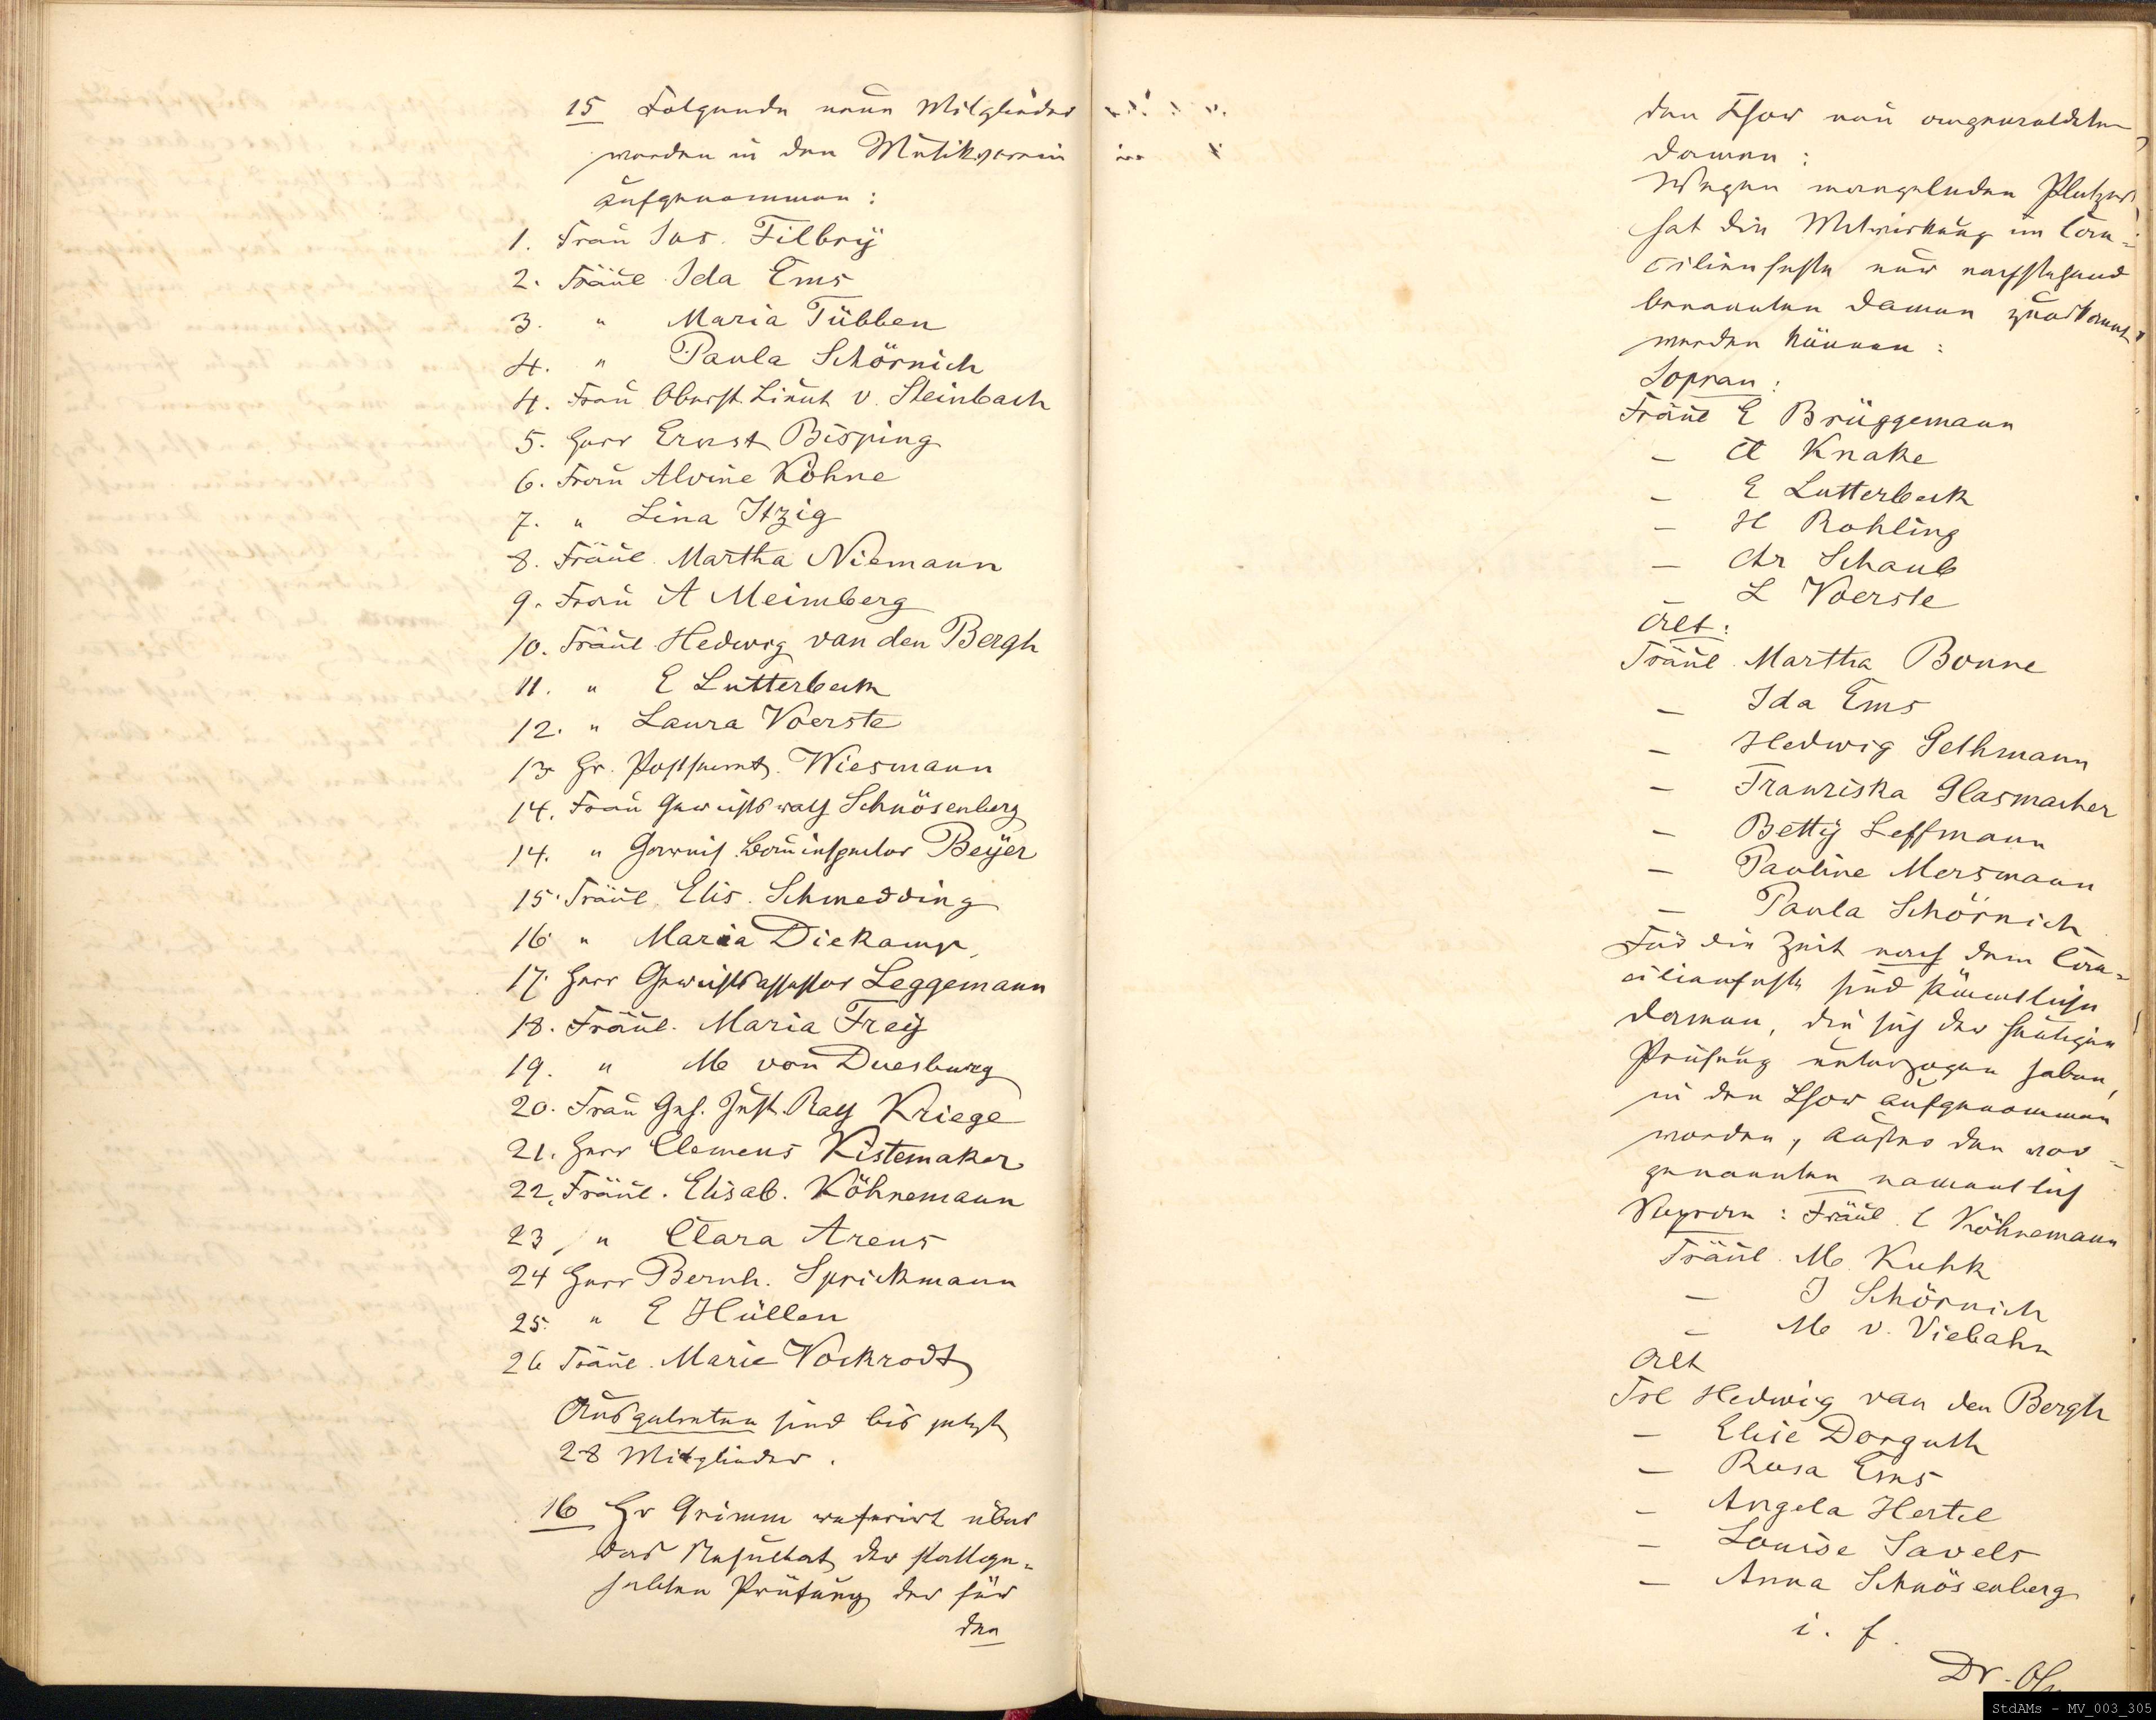 15 Folgende neue Mitglieder
werden in den Musikverein
aufgenommen:
1. Frau Jos. Filbry
2. Fräul Ida Ems
3. " Maria Tübben
4. " Paula Schörnich
4. Frau Oberst. Lieut v. Steinbach
5. Herr Ernst Bisping
6. Frau Alvine Köhne
7. " Lina Itzig
8. Fräul. Martha Niemann
9. Frau A Meimberg
10. Fräul. Hedwig van den Bergh
11. " E Lutterbeck
12. " Laura Voerste
13 Hr. Postsecret. Wiesmann
14. Frau Gerichtsrath Schnösenberg
14. " Garnis. Bauinspector Beyer
15. Fräul. Elis. Schmedding
16 " Maria Diekamp.
17. Herr Gerichtsassessor Leggemann
18. Fräul. Maria Frey
19. " M von Duesburg
20. Frau Geh. Just. Rath Kriege
21. Herr Clemens Kistemaker
22. Fräul. Elisab. Köhnemann
23 " Clara Arens
24 Herr Bernh. Sprickmann
25. " E Hüllen
26 Fräul. Marie Vockrodt
Ausgetreten sind bis jetzt
28 Mitglieder.
16 Hr Grimm referirt über
das Resultat der stattge-
habten Prüfung der für
den
den Chor neu angemeldeten
Damen:
Wegen mangelnden Platzes
hat die Mitwirkung im Cae-
cilienfeste nur nachstehend
benannten Damen zuerkannt
werden können:
Sopran:
Fräul E Brüggemann
— A Knake
— E Lutterbeck
— H Rohling
— Chr Schaub
— L Voerste
Alt:
Fräul. Martha Bonne
— Ida Ems
— Hedwig Gethmann
— Franziska Glasmacher
— Betty Leffmann
— Pauline Mersmann
— Paula Schörnich
Für die Zeit nach dem Cae-
cilienfeste sind sämmtliche
Damen, die sich der heutigen
Prüfung unterzogen haben,
in den Chor aufgenommen
worden, außer den vor-
genannten namentlich
Sopran: Fräul. E Köhnemann
Fräul. M. Kuhk
— J Schörnich
— M v. Viebahn
Alt
Frl Hedwig van den Bergh
— Elise Dorguth
— Rosa Ems
— Angela Hertel
— Louise Savels
— Anna Schnösenberg
i. f.
Dr.
StdAMs - MV_003_305